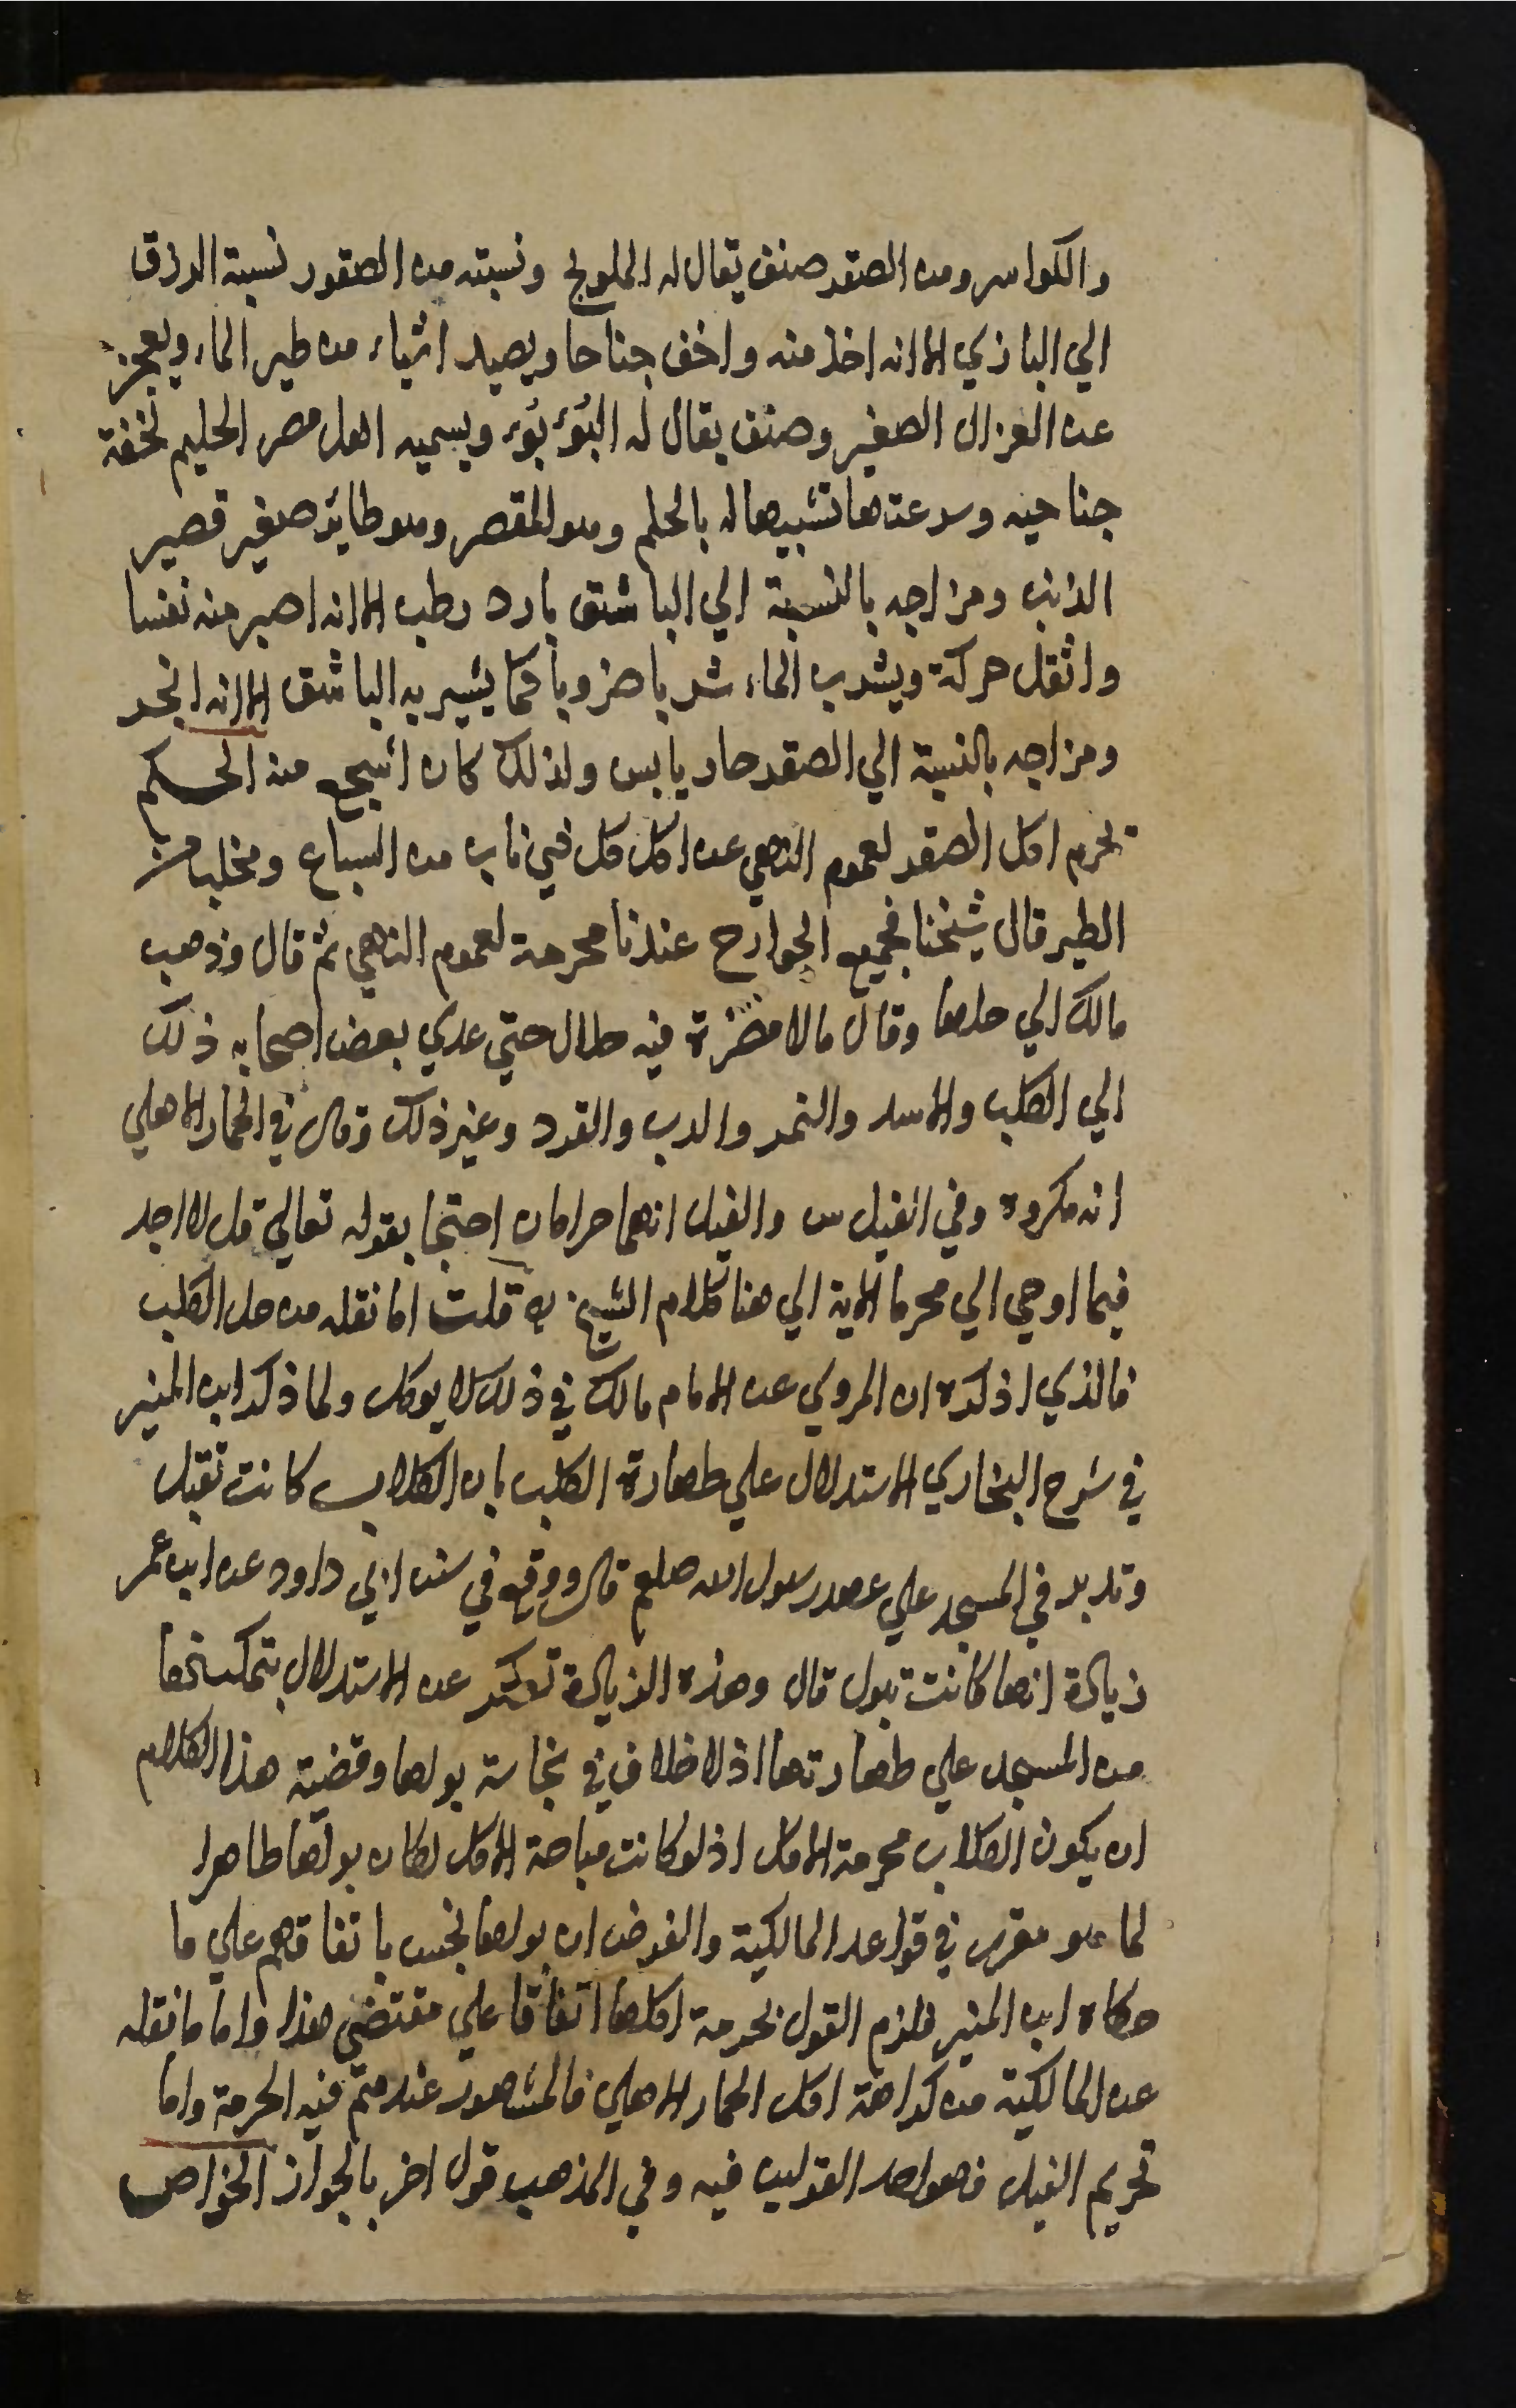 والكواسر ومن الصقر صنف يقال له الملولح ونسبته من الصقور نسبة الزرق
الي البازي الا انه اخذ منه واخف جناحا ويصيد اشياء من طير الماء ويعجز
عن الغزال الصغير وصنف يقال له البُوءبُوء ويسميه اهل مصر الحليم لخفة
جناحيه وسرعتها تشبيها له بالحلم وهو المقصر وهو طاير صغير قصير
الذنب ومزاجه بالنسبة الي الباشق بارد رطب الا انه اصبر منه نفسا
واثقل حركة ويشرب الماء شربا ضروبا كما يشير به الباشق الا انه ابخر
ومزاجه بالنسبة الي الصقر حار يابس ولذلك كان اشجع منه الحكم
تحرم اكل الصقر لعموم النهي عن اكل كل ذي ناب من السباع ومخلب من
الطير قال شيخنا فجميع الجوارح عندنا محرمة لعموم النهي ثم قال وذهب
مالك الي حلها وقال مالا مضرة فيه حلال حتي عدي بعض اصحابه ذلك
الي الكلب والاسد والنمر والدب والقرد وغير ذلك وقال في الحمار الاهلي
انه مكروه وفي الفيل س والفيل انهما حرامان احتجا بقوله تعالي قل لا اجد
فيما اوحي الي محرما الاية الي هنا كلام الشيخ قلت اما نقله من حل الكلب
فالذي اذكره ان المروي عن الامام مالك في ذلك لا يوكل ولما ذكر ابن المنير
في شرح البخاري الاستدلال علي طهارة الكلب بان الكلاب كانت تقبل
وتدبر في المسجد علي عهد رسول الله صلعم قال ووقع في سنن ابي داود عن ابن عمر
زيادة انها كانت تبول قال وهذه الزيادة تعكر عن الاستدلال بتمكينها
من المسجد علي طهارتها اذ لا خلاف في نجاسة بولها وقضية هذا الكلام
ان يكون الكلاب محرمة الاكل اذ لو كانت مباحة الاكل لكان بولها طاهرا
لما هو مقرر في قواعد المالكية والفرض ان بولها نجس باتفاقهم علي ما
حكاه ابن المنير فلزم القول بحرمة اكلها اتفاقا علي مقتضي هذا واما ما نقله
عن المالكية من كراهة اكل الحمار الاهلي فالمشهور عندهم فيه الحرمة واما
تحريم الفيل فهو احد القولين فيه وفي المذهب قول اخر بالجواز الخواص